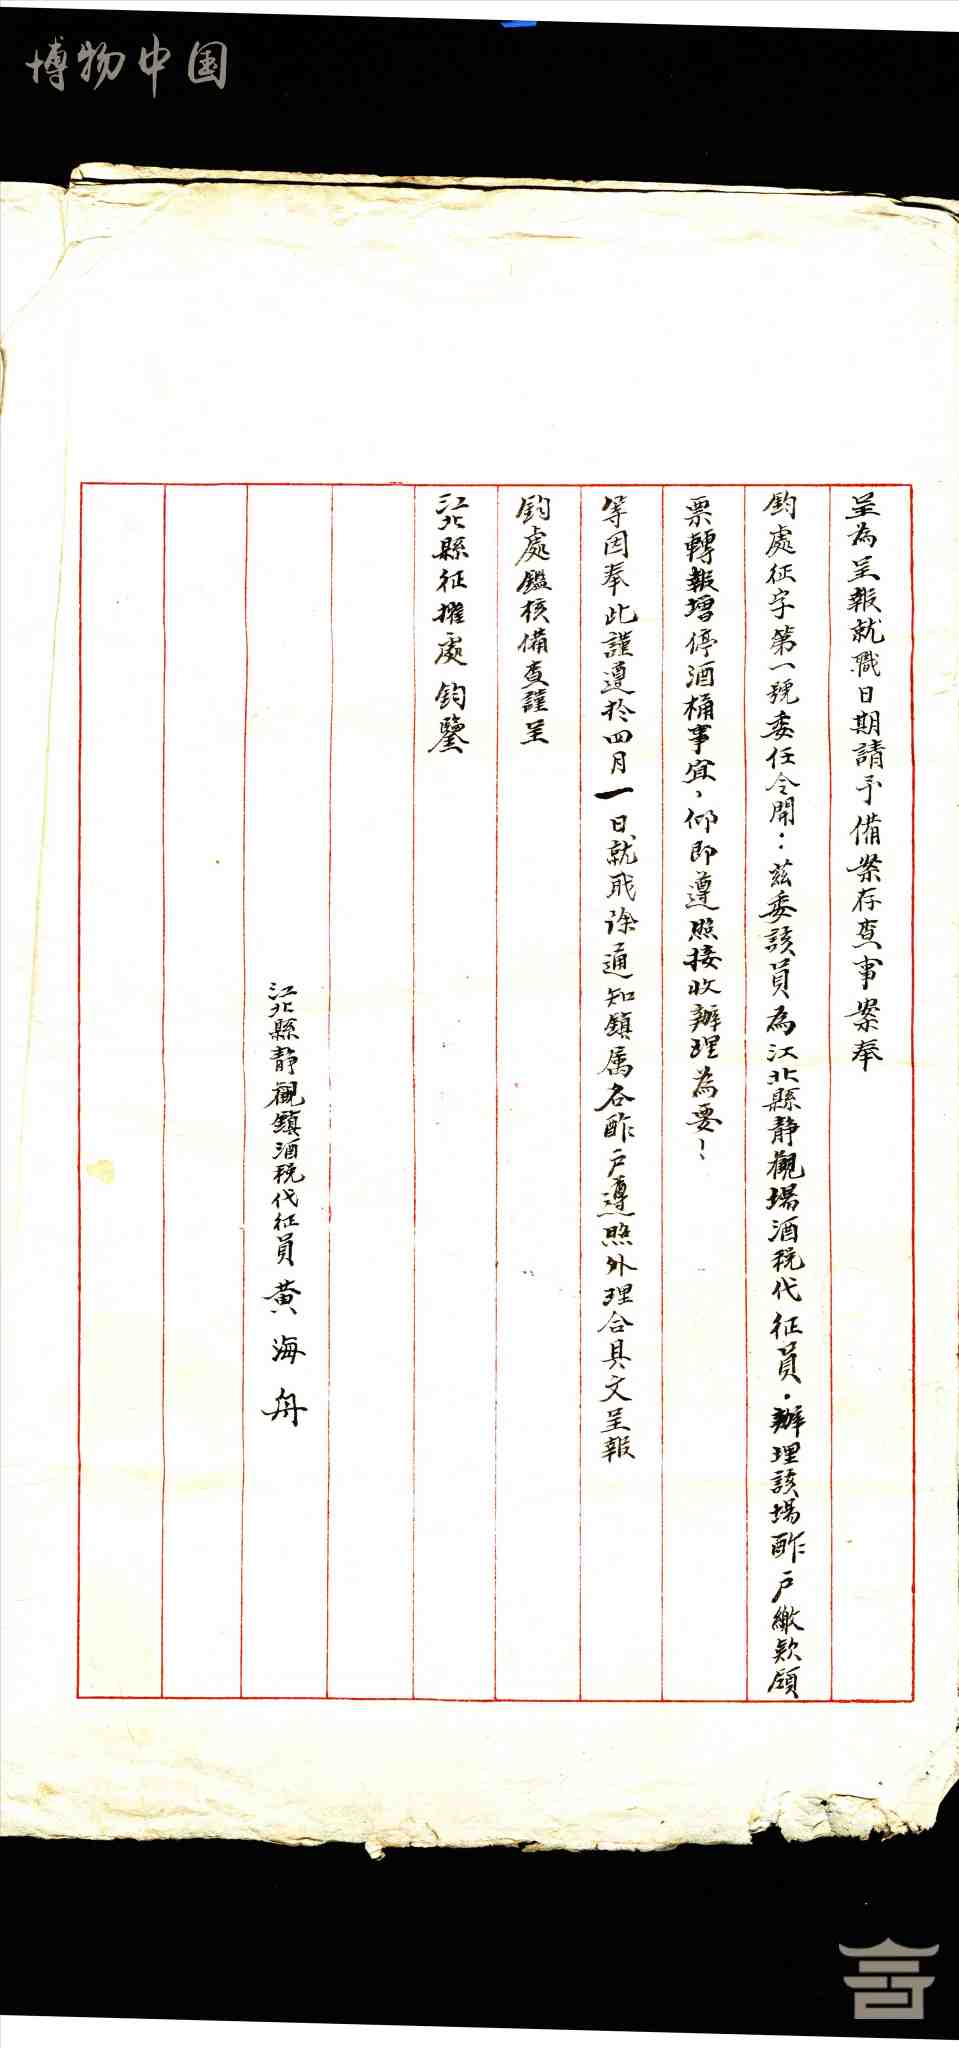 博物中国
呈為呈報就職日期請予備案存查事案奉
鈞處征字第一號委任令開：茲委該員為江北縣靜觀場酒稅代征員．辦理該場酢户繳欵領
票轉報增停酒桶事宜，仰即遵照接收辦理為要！
等因奉此謹遵於四月一日就戝除通知鎮属各酢户遵照外理合具文呈報
鈞處鑑核備查謹呈
江北縣征搉處鈞鑒
江北縣靜觀鎮酒稅代征員黃海舟